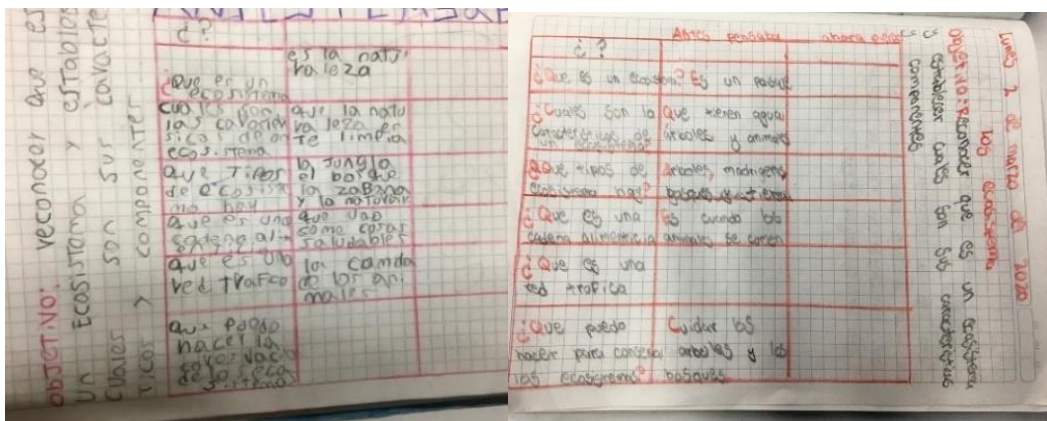 OBJETIVO: reconocer que es
un Ecosistema y establos
cuales son sus caracte
ticos y componentes
¿?
¿Que es un
ecosistema
es la natu
raleza
cuales son
las
ecosistema
que la natu
raleza es
te limpia
que Tipos
de ecosiste
ma hay
la jungla
el bosque
la zabana
y la
que es una
que uno
come cosas
saludables
que es una
red trafica
la comda
de los ani
males
que puedo
hacer la
Lunes 2 de marzo de 2020
los ecosistema
Objetivo: Reconocer que es un ecosistema
es establecer cuales son sus caracteristicas
componentes
¿?
Antes pensaba
ahora
¿Que es un
Es un
¿Cuales son la
caracteristicas de
un ecosistema?
Que tienen agua
arboles y animales
¿Que tipos de
ecosistema hay?
Arboles, madrigera
bosques
¿Que es una
cadena alimenticia
Es cuando los
animales se comen
¿Que es una
red trofica
¿Que puedo
hacer para conservar
los ecosistemas?
Cuidar los
arboles y los
bosques